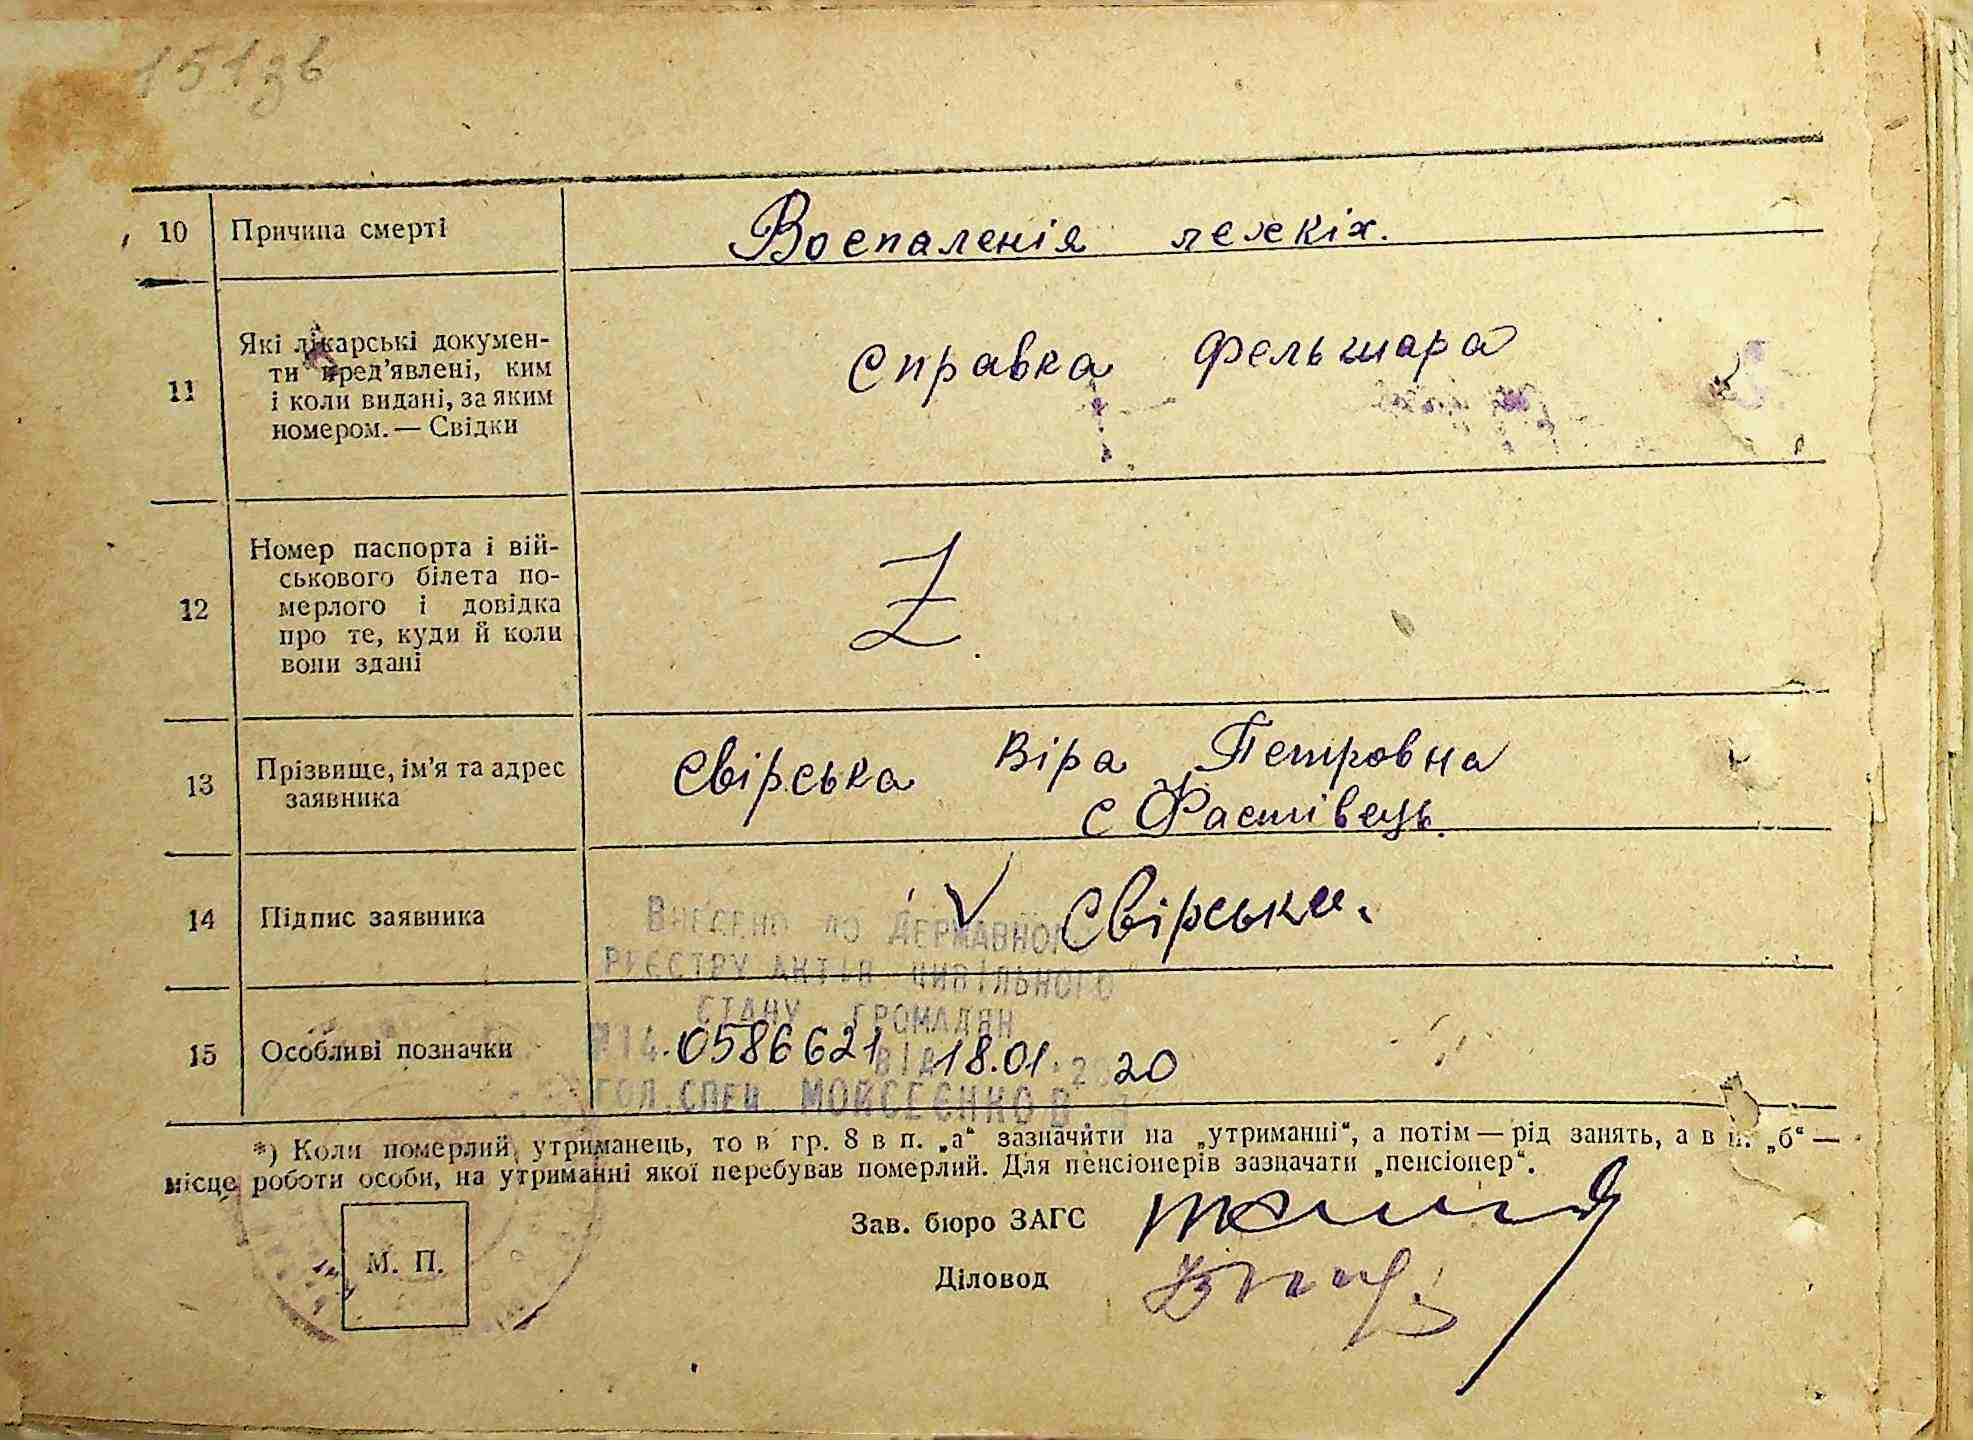 151зв
10 Причина смерті Воспаленія лехкіх.
11 Які лікарські докумен-
ти пред’явлені, ким
і коли видані, за яким
номером.— Свідки
Справка фельшара
12 Номер паспорта і вій-
ськового білета по-
мерлого і довідка
про те, куди й коли
вони здані
Z
13 Прізвище, ім’я та адрес
заявника
Свірська Віра Петровна
с Фастівець.
14 Підпис заявника V Свірська.
Внесено до Державного
реєстру актів цивільного
стану громадян
15 Особливі позначки
0586621 від 18.01.2020
гол. спец. Мойсеєнко В
*) Коли померлий утриманець, то в гр. 8 в п. „а“ зазначити на „утриманні“, а потім — рід занять, а в п. „б“ —
місце роботи особи, на утриманні якої перебував померлий. Для пенсіонерів зазначати „пенсіонер“.
Зав. бюро ЗАГС
М. П.
Діловод